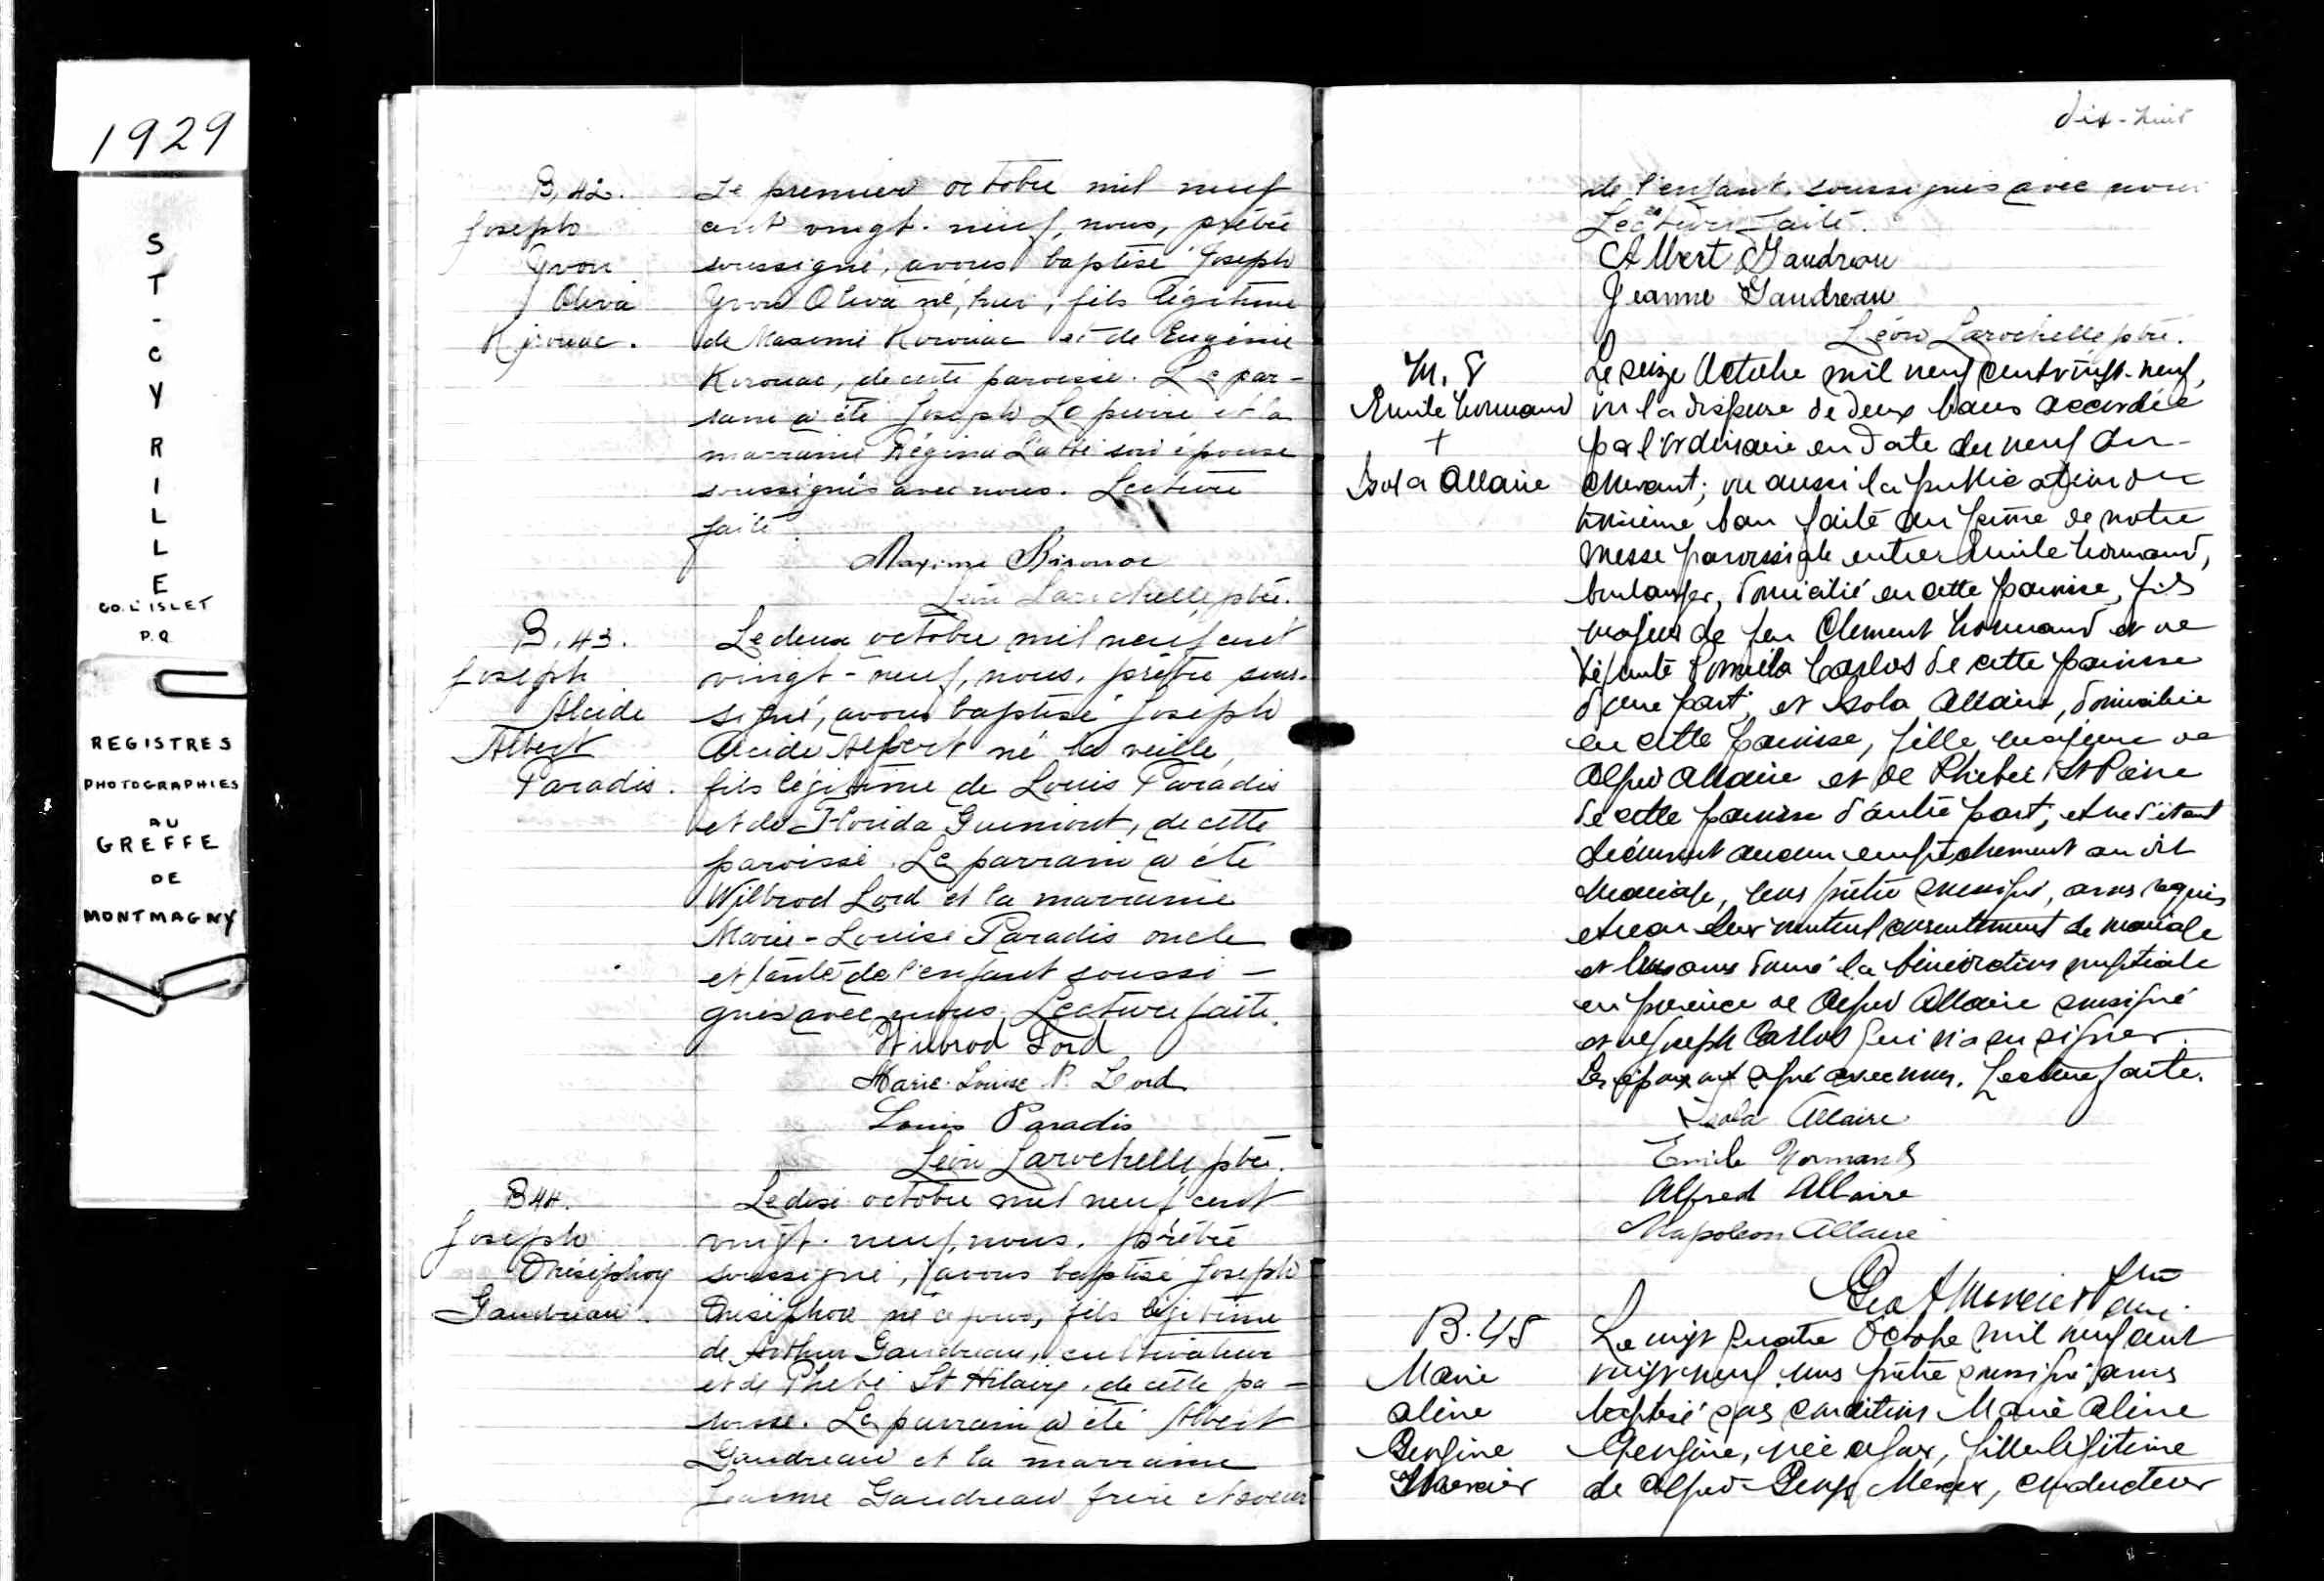 1929
ST-CYRILLE
CO. L'ISLET
P.Q.
REGISTRES
PHOTOGRAPHIES
AU
GREFFE
DE
MONTMAGNY
B. 42.
Joseph
Yvon
Oliva
Kirouac.
Le premier octobre mil neuf
cent vingt-neuf, nous, prêtre
soussigné, avons baptisé Joseph
Yvon Oliva né, hier, fils légitime
de Maxime Kirouac et de Eugénie
Kirouac, de cette paroisse. Le par-
rain a été Joseph Lapierre et la
marraine Régina son épouse
soussignés avec nous. Lecture
faite.
Maxime Kirouac
Léon Larochelle, ptre.
B. 43.
Joseph
Alcide
Albert
Paradis.
Le deux octobre mil neuf cent
vingt-neuf, nous, prêtre sous-
signé, avons baptisé Joseph
Alcide Albert né la veille,
fils légitime de Louis Paradis
et de Florida Guimont, de cette
paroisse. Le parrain a été
Wilbrod Lord et la marraine
Marie-Louise Paradis oncle
et tante de l'enfant soussi-
gnés avec nous. Lecture faite.
Wilbrod Lord
Marie-Louise P. Lord
Louis Paradis
Léon Larochelle, ptre.
B 44.
Joseph
Onésiphore
Gaudreau.
Le dix octobre mil neuf cent
vingt-neuf, nous, prêtre
soussigné, avons baptisé Joseph
Onésiphore né ce jour, fils légitime
de Arthur Gaudreau, cultivateur
et de Phebé St Hilaire, de cette pa-
roisse. Le parrain a été Albert
Gaudreau et la marraine
Jeanne Gaudreau frère et soeur
dix-huit
de l'enfant, soussignés avec nous
Lecture faite.
Albert Gaudreau
Jeanne Gaudreau
Léon Larochelle, ptre.
M. 8
Emile Normand
+
Isola Allaire
Le seize Octobre mil neuf cent vingt-neuf,
vu la dispense de deux bans accordée
par l'ordinaire en date du neuf du
courant; vu aussi la publication du
troisième ban faite au prône de notre
messe paroissiale entre Emile Normand,
boulanger, domicilié en cette paroisse, fils
majeur de feu Clement Normand et de
défunte Carlos de cette paroisse
d'une part, et Isola Allaire, domiciliée
en cette paroisse, fille majeure de
Alfred Allaire et de Phebée St Pierre
de cette paroisse d'autre part; et ne s'étant
découvert aucun empêchement au dit
mariage, nous prêtre soussigné, avons requis
et reçu leur mutuel consentement de mariage
et leur avons donné la bénédiction nuptiale
en présence de Alfred Allaire soussigné
et de Joseph Carlos qui n'a su signer.
Les époux ont signé avec nous. Lecture faite.
Isola Allaire
Emile Normand
Alfred Allaire
Napoleon Allaire
Geo A Mercier ptre
curé.
B. 45
Marie
Aline
Georgine
Mercier
Le vingt quatre Octobre mil neuf cent
vingt neuf, nous prêtre soussigné avons
baptisé sous condition Marie Aline
Georgine, née ce jour, fille légitime
de Alfred-Mercier, conducteur